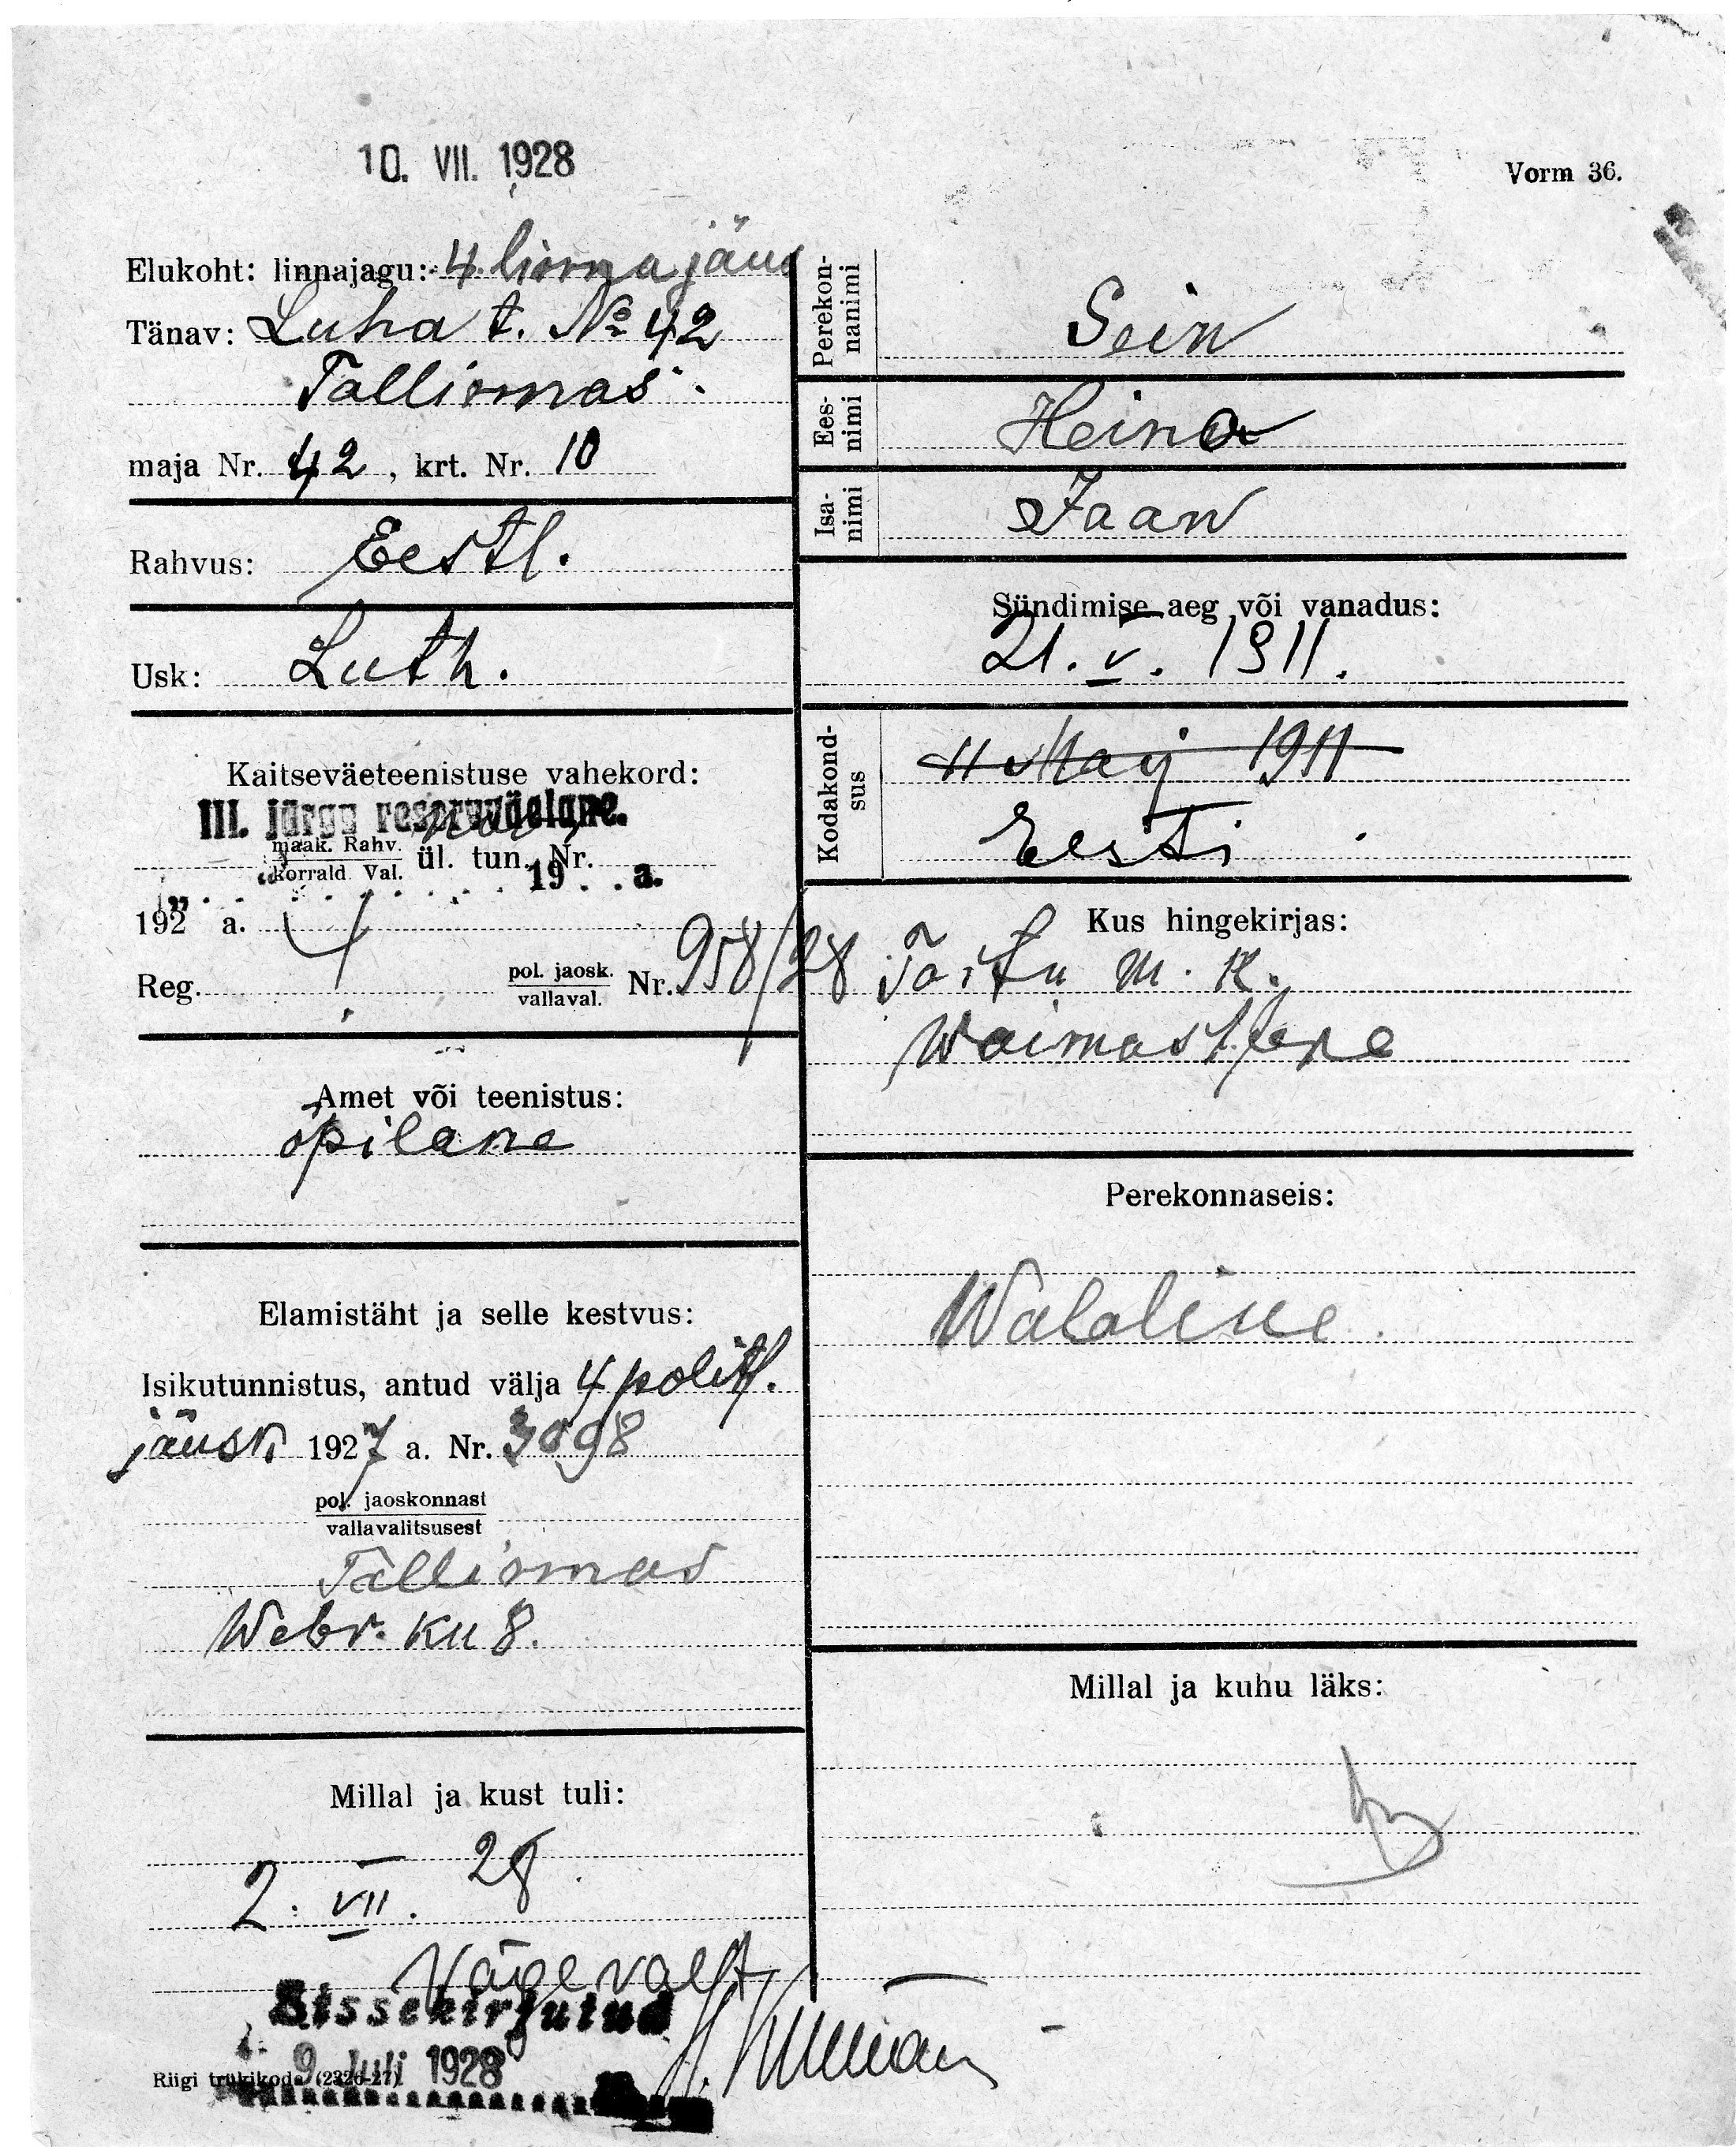 10. VII. 1928
Vorm 36.
Elukoht: linnajagu: 4. linna jäus
Tänav: Luha t. № 42
Tallinnas.
maja Nr. 42, krt. Nr. 10
Rahvus: Eestl.
Usk: Luth.
Kaitseväeteenistuse vahekord:
III. järgu reservväelane.
maak. Rahv.
korrald. Val. ül. tun. Nr.
„ 19 a.
192 a.
Reg. 4 pol. jaosk.
vallaval. Nr. 958/28
Amet või teenistus:
õpilane
Elamistäht ja selle kestvus:
Isikutunnistus, antud välja 4 polits.
jausk. 1927 a. Nr. 3098
pol. jaoskonnast
vallavalitsusest
Tallinnas
Webr. ku 8.
Millal ja kust tuli:
2. VII. 28
Sissekirjutud
9. Juli 1928
Riigi trükikoda (2326-27)
Perekon-
nanimi Sein
Ees-
nimi Heino
Isa-
nimi Jaan
Sündimise aeg või vanadus:
21. V. 1911.
Kodakond-
sus 11 May 1911
Eesti
Kus hingekirjas:
Tartu m. k.
Waimastfere
Perekonnaseis:
Walaline
Millal ja kuhu läks: